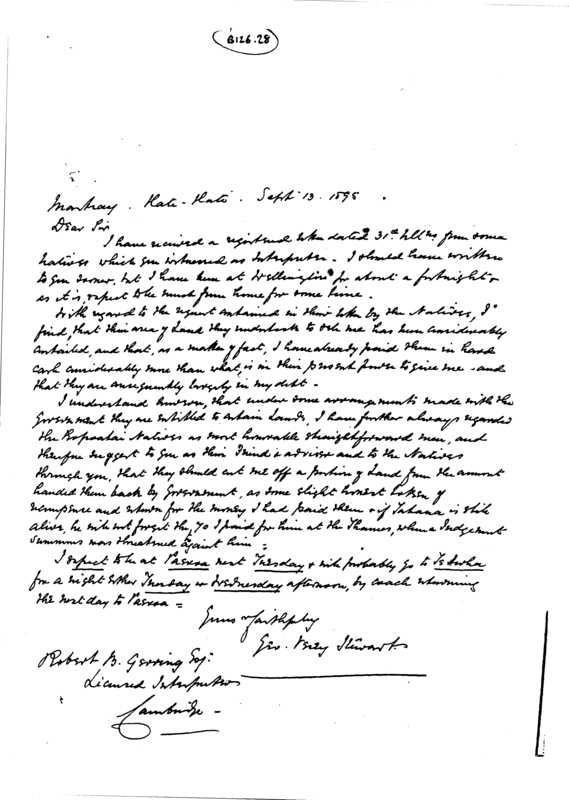 B126.28
Kati-Kati. Sept 13. 1898.
Dear Sir
I have received a registered letter dated 31st from some
Natives which you witnessed as Interpreter - I should have written
to you sooner, but I have been at Wellington for about a fortnight &
as it is expect to be much from home for some time.
With regard to the request contained in their letter by the Natives, I
find, that their area of Land they undertook to sell me has been considerably
curtailed, and that, as a matter of fact, I have already paid them in hard
cash considerably more than what is in their present power to give me - and
that they are consequently largely in my debt -
I understand however, that under some arrangements made with the
Government they are entitled to certain Lands, I have further always regarded
the Natives as most honorable straightforward men, and
therefore suggest to you as their friend & adviser and to the Natives
through you, that they should cut me off a portion of Land from the amount
handed them back by Government, as some slight honest token of
recompense and return for the money I had paid them & if is still
alive, he will not forget the 70 I paid for him at the Thames, when a Judgement
Summons was threatened against him =
I expect to be at Paeroa next Tuesday & will probably go to Te Aroha
for a night either Tuesday or Wednesday afternoon, by coach returning
the next day to Paeroa =
Yours faithfully
Geo. Vesey Stewart.
Robert B. Gerring Esq:
Licensed Interpreter
Cambridge -